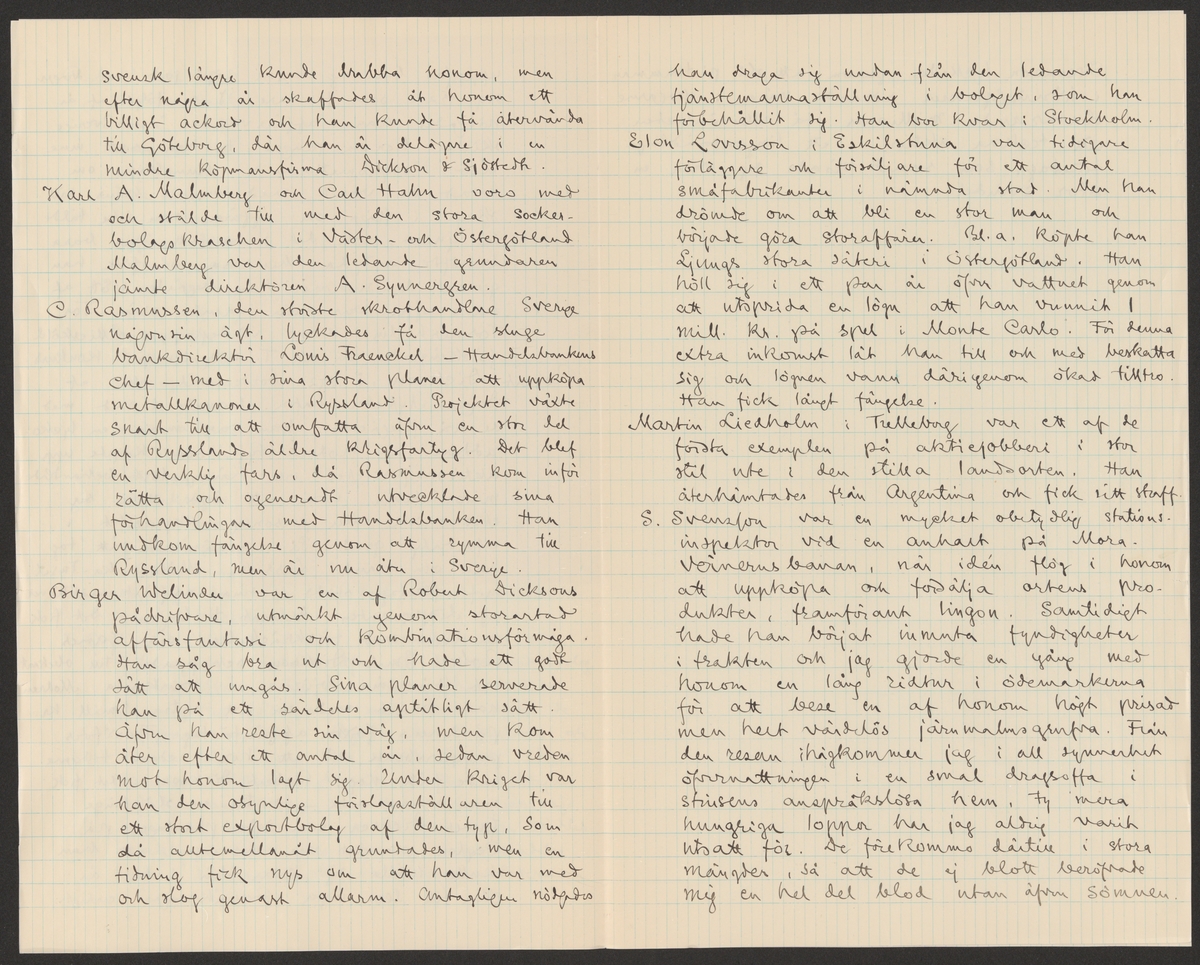 svensk längre kunde drabba honom, men
efter några år skaffades åt honom ett
billigt ackord och han kunde få återvända
till Göteborg, där han är delägare i en
mindre köpmansfirma Dickson & Sjöstedt.
Karl A. Malmberg och Carl Hahn voro med
och stälde till med den stora socker-
bolagskraschen i Väster- och Östergötland
Malmberg var den ledande grundaren
jämte direktören A. Synnergren.
C. Rasmussen, den störste skrothandlare Sverge
någonsin ägt, lyckades få den sluge
bankdirektör Louis Fraenckel – Handelsbankens
chef – med i sina stora planer att uppköpa
metallkanoner i Ryssland. Projektet växte
snart till att omfatta äfven en stor del
af Rysslands äldre krigsfartyg. Det blef
en verklig fars, då Rasmussen kom inför
rätta och ogeneradt utvecklade sina
förhandlingar med Handelsbanken. Han
undkom fängelse genom att rymma till
Ryssland, men är nu åter i Sverge.
Birger Welinder var en af Robert Dicksons
pådrifvare, utmärkt genom storartad
affärsfantasi och kombinationsförmåga.
Han såg bra ut och hade ett godt
sätt att umgås. Sina planer serverade
han på ett särdeles aptitligt sätt.
Äfven han reste sin väg, men kom
åter efter ett antal år, sedan vreden
mot honom lagt sig. Under kriget var
han den osynlige förslagsställaren till
ett stort exportbolag af den typ, som
då alltemellanåt grundades, men en
tidning fick nys om att han var med
och slog genast allarm. Antagligen nödgades
han draga sig undan från den ledande
tjänstemannaställning i bolaget, som han
förbehållit sig. Han bor kvar i Stockholm.
Elon Lovisson i Eskilstuna var tidigare
förläggare och försäljare för ett antal
småfabrikanter i nämnda stad. Men han
drömde om att bli en stor man och
började göra storaffärer. Bl. a. köpte han
Ljungs stora säteri i Östergötland. Han
höll sig i ett par år öfver vattnet genom
att utsprida en lögn att han vunnit 1
mill. kr. på spel i Monte Carlo. För denna
extra inkomst lät han till och med beskatta
sig och lögnen vann därigenom ökad tilltro.
Han fick långt fängelse.
Martin Liedholm i Trelleborg var ett af de
första exemplen på aktiejobberi i stor
stil ute i den stilla landsorten. Han
återhämtades från Argentina och fick sitt straff.
S. Svensson var en mycket obetydlig stations-
inspektor vid en anhalt på Mora-
Venernsbanan, när idén flög i honom
att uppköpa och försälja ortens pro-
dukter, framförant lingon. Samtidigt
hade han börjat inmuta fyndigheter
i trakten och jag gjorde en gång med
honom en lång ridtur i ödemarkerna
för att bese en af honom högt prisad
men helt värdelös järnmalmsgrufva. Från
den resan ihågkommer jag i all synnerhet
öfvernattningen i en smal dragsoffa i
stinsens anspråkslösa hem. Ty mera
hungriga loppor har jag aldrig varit
utsatt för. De förekommo därtill i stora
mängder, så att de ej blott beröfvade
mig en hel del blod utan äfven sömnen.